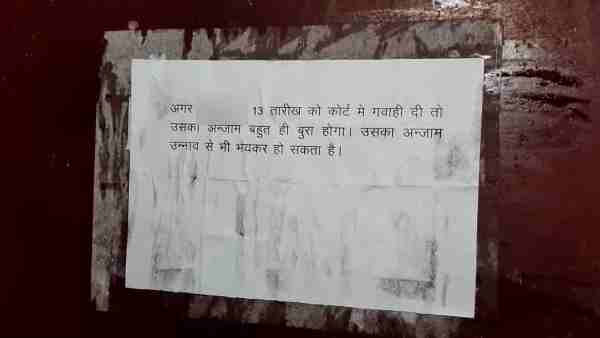 अगर 13 तारीख को कोर्ट मे गवाही दी तो
उसका अन्जाम बहुत ही बुरा होगा। उसका अन्जाम
उन्नाव से भी भंयकर हो सकता है।